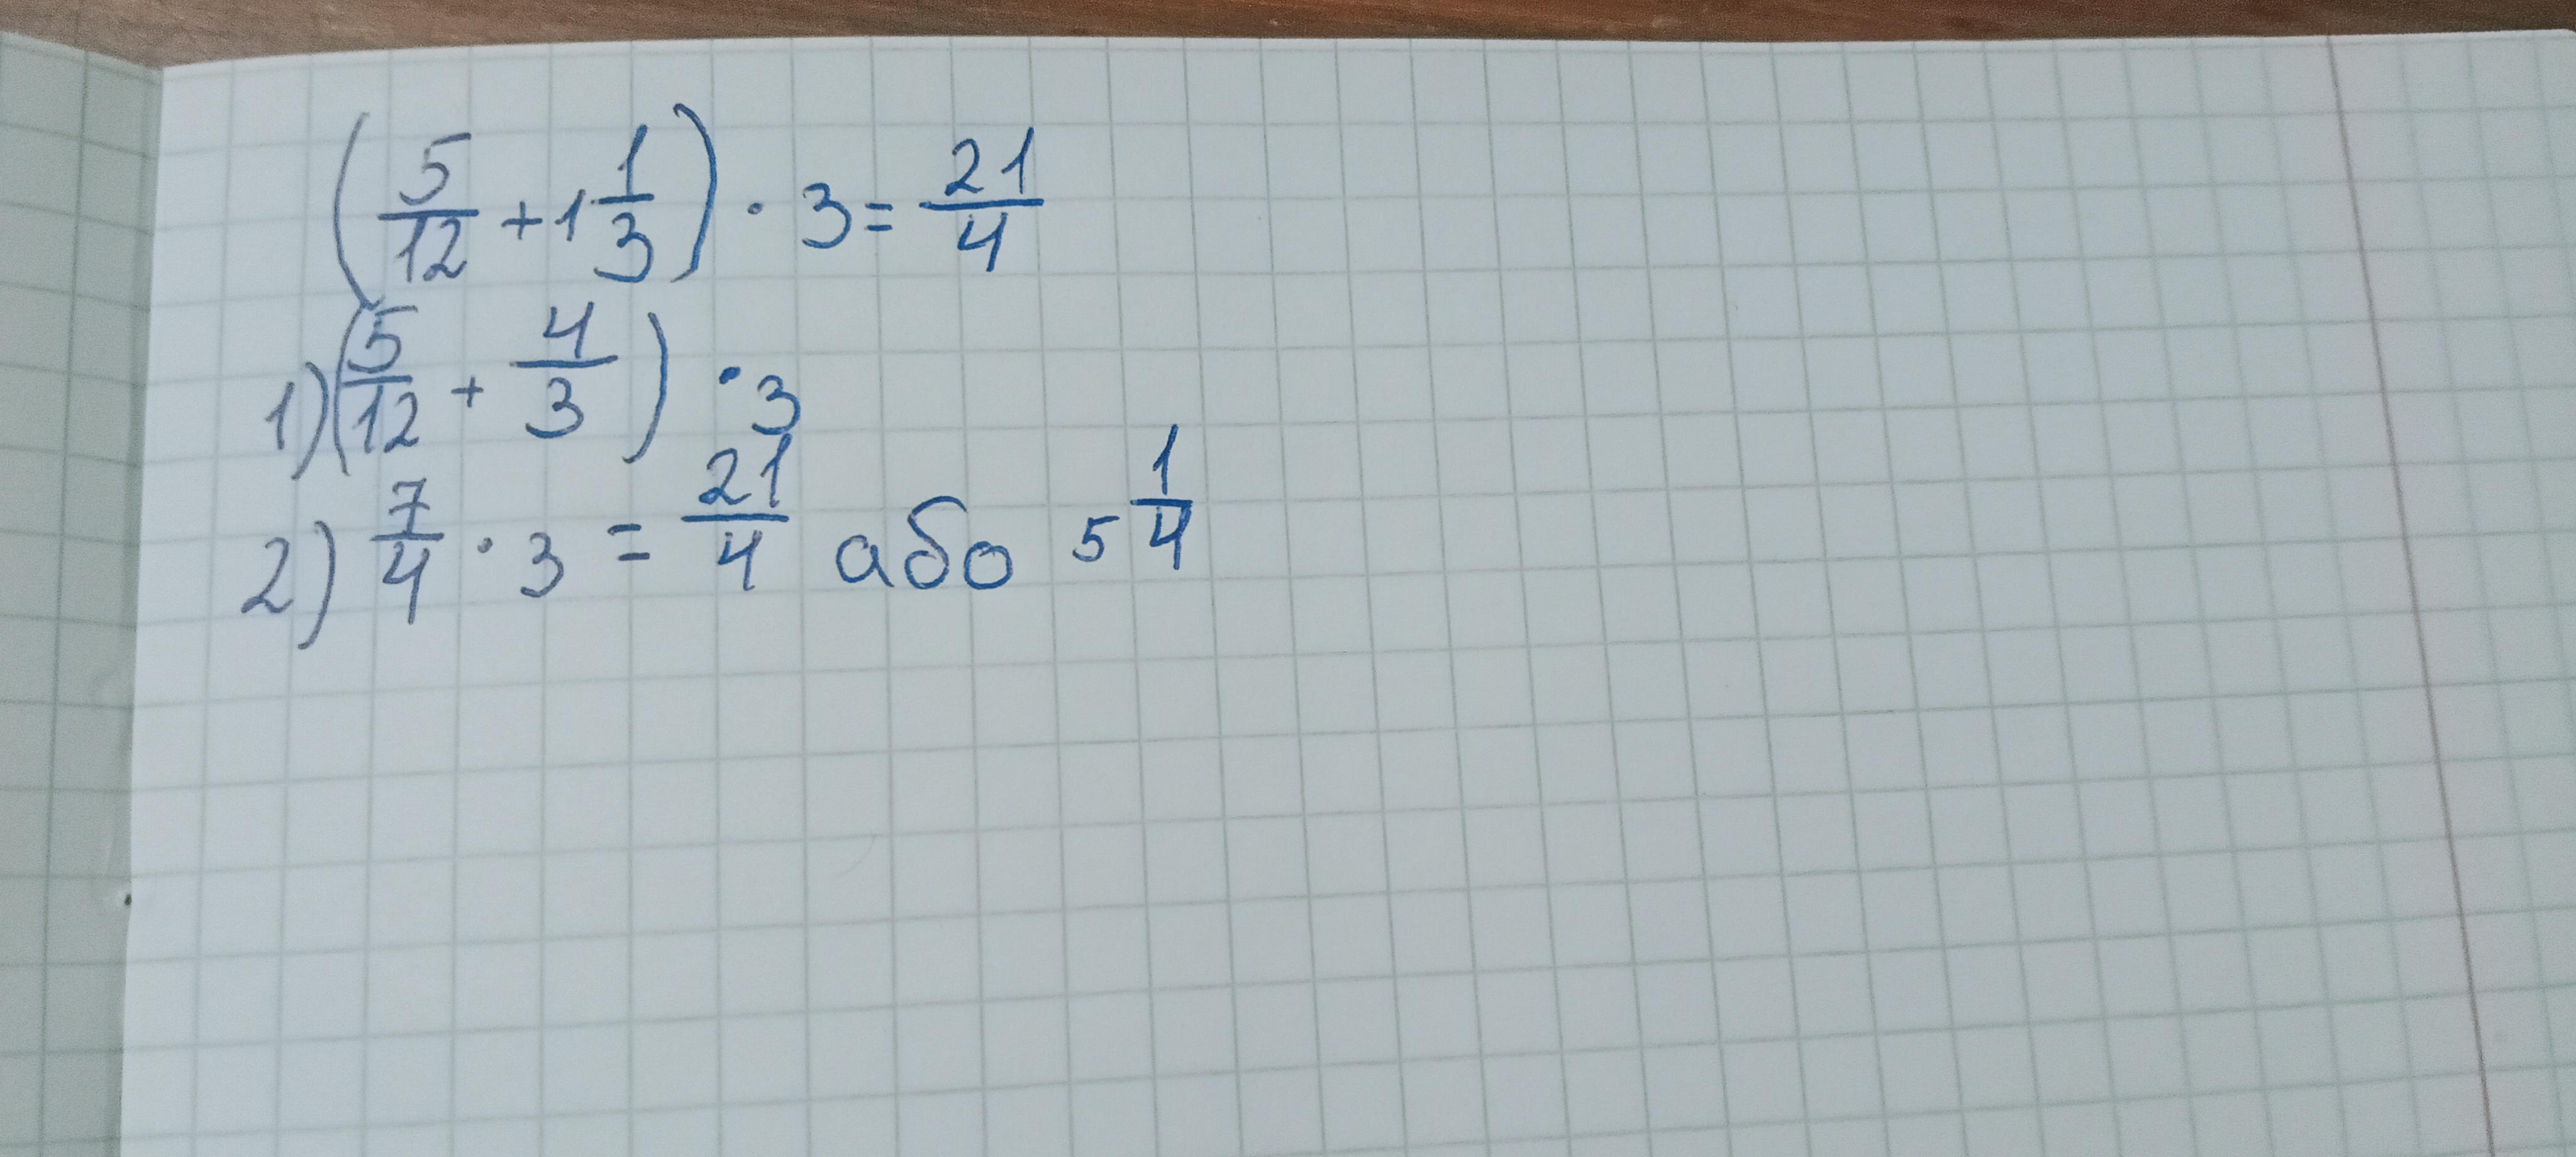 (5/12 + 1 1/3) · 3 = 21/4
1) (5/12 + 4/3) · 3
2) 7/4 · 3 = 21/4 або 5 1/4